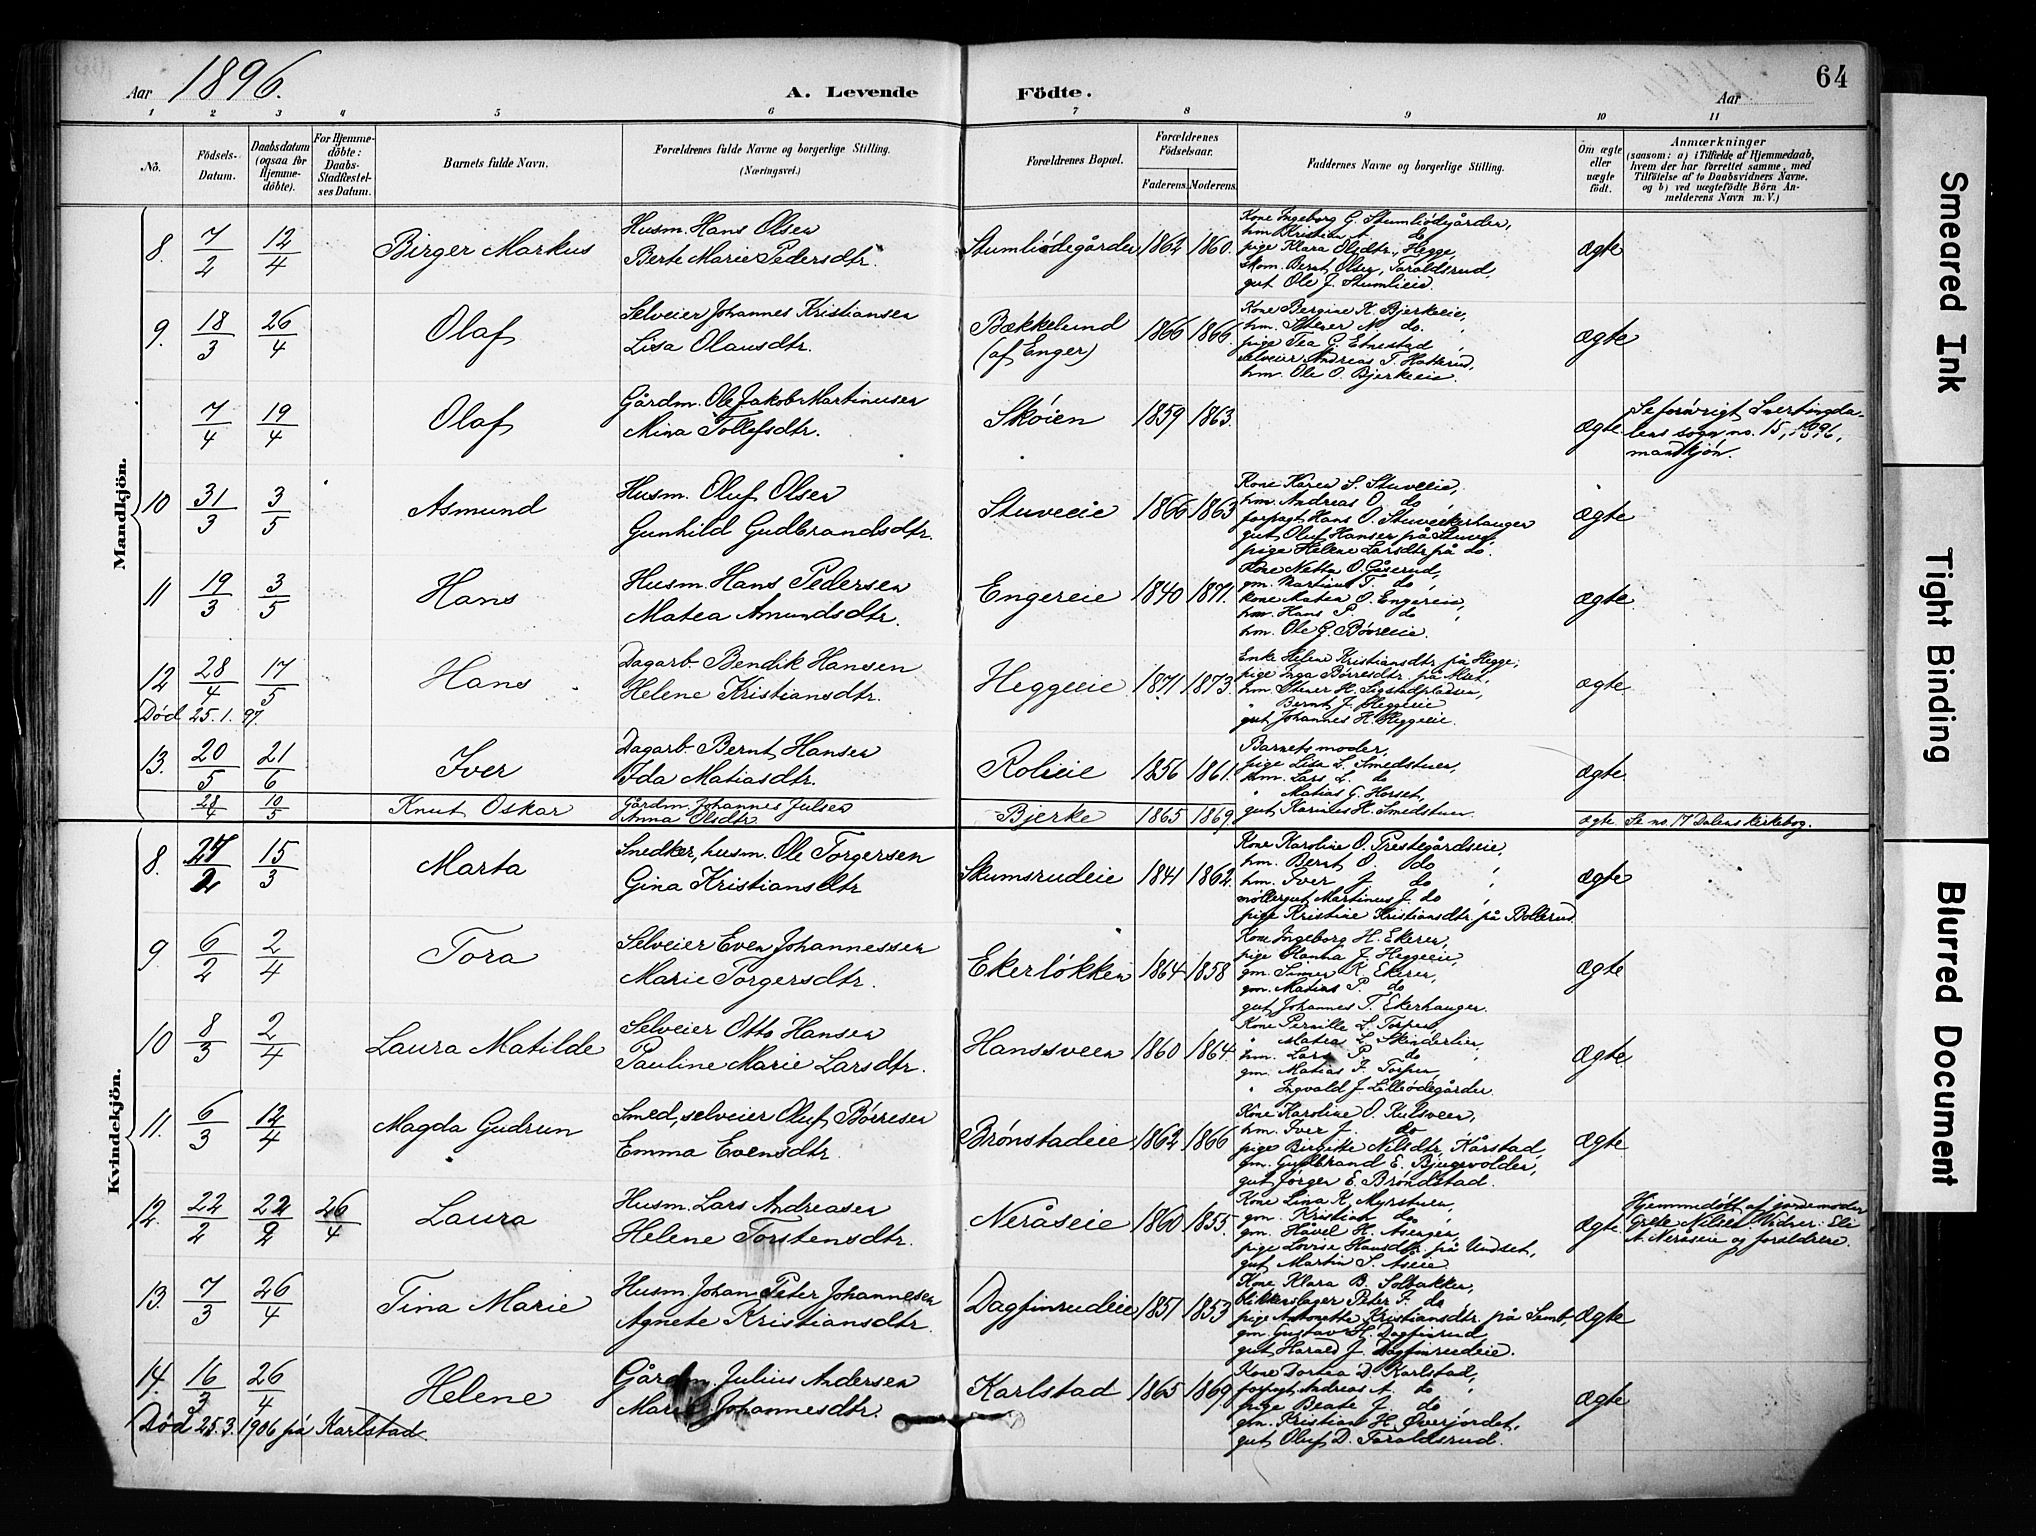 Aar 1896.
A. Levende Födte.
Aar
64
1 2 3 4 5 6 7 8 9 10 11
No.
Födsels-Datum.
Daabsdatum (ogsaa for Hjemme-döbte).
For Hjemme-döbte: Daabs-Stadfæstel-ses Datum.
Barnets fulde Navn.
Forældrenes fulde Navne og borgerlige Stilling.
(Næringsvei.)
Forældrenes Bopæl.
Forældrenes Födselsaar.
Faderens. Moderens.
Faddernes Navne og borgerlige Stilling.
Om ægte eller uægte födt.
Anmærkninger
(saasom: a) i Tilfælde af Hjemmedaab, hvem der har forrettet samme, med Tilföielse af to Daabsvidners Navne. og b) ved uægtefödte Börn An-melderens Navn m. V.)
Mandkjön.
8. 7/2 12/4 Birger Markus
Husm. Hans Olsen
Berte Marie Pedersdtr.
Stumliödegården 1862 1860.
Kone Ingeborg G. Stumliödegården,
hm Kristian A. do
pige Klara Olsdtr., Hegge,
Skom. Bernt Olsen, Taraldsrud,
gut Ole J. Stumlieie.
ægte
9. 18/3 26/4 Olaf
Selveier Johannes Kristiansen
Lisa Olausdtr.
Bækkelund
(af Enger)
1866 1866.
Kone Bergine K. Bjerkeeie,
hm. Stener N. do.
pige Tea G. Etnestad
selveier Andreas T. Hatterud,
hm. Ole O. Bjerkeeie.
ægte
7/4 19/4 Olaf
Gårdm. Ole Jakob Martinusen
Mina Tollefsdtr.
Skøien 1859 1863.
ægte.
Se forøvrigt Svertingda-
lens sogn no. 15, 1896,
mandkjön.
10 31/3 3/5 Asmund
Husm. Oluf Olsen
Gunhild Gudbrandsdtr.
Stuveeie 1866 1863
Kone Karen S. Stuveeie,
hm. Andreas O. do,
forpagt. Hans O. Stuveekerhaugen
gut Oluf Hansen på Stuve,
pige Helene Larsdtr på do.
ægte
11 19/3 3/5 Hans
Husm. Hans Pedersen
Matea Amundsdtr.
Engereie 1840 1871.
Kone Netta O. Gåserud,
gm. Martinus T. do,
kone Matea O. Engereie,
hm. Hans P. do
hm. Ole G. Bövreeie.
ægte
12 28/4 17/5 Hans
Død 25.1.97.
Dagarb. Bendik Hansen
Helene Kristiansdtr.
Heggeeie 1871 1873.
Enke Helene Kristiansdtr på Hegge,
pige Inga Børresdtr. på Alet,
hm. Stener H. Sigstadpladsen,
" Bernt J. Heggeeie
gut Johannes H. Heggeeie.
ægte
13. 20/5 21/6 Iver
Dagarb. Bernt Hansen
Ida Matiasdtr.
Rolieie 1856 1861.
Barnets moder,
pige Lisa L. Smedstuen,
hm. Lars L. do
" Matias G. Horset,
gut Karinius H. Smedstuen.
ægte
28/4 10/5 Knut Oskar
Gårdm. Johannes Julsen
Anna Olsdtr.
Bjerke 1865 1869.
ægte. Se no. 17 Dalens kirkebog.
Kvindekjön.
8. 27/2 15/3 Marta
Snedker, husm. Ole Torgersen
Gina Kristiansdtr
Skumsrudeie 1841 1862.
Kone Karoline O. Prestegårdseie,
hm. Bernt O. do
hm. Iver J. do
möllergut Martinus J. do
pige Kristine Kristiansdtr. på Bollerud.
ægte
9. 6/2 2/4 Tora
Selveier Even Johannessen
Marie Torgersdtr.
Ekerløkken 1864 1858
Kone Ingeborg H. Ekeren,
pige Hanna J. Heggeeie,
gm. Simen K. Ekeren,
gm. Matias P. do
gut Johannes T. Ekerhaugen.
ægte
10 8/3 2/4 Laura Matilde
Selveier Otto Hansen
Pauline Marie Larsdtr.
Hanssveen 1860 1864.
Kone Pernille L. Torpen,
" Matea L. Skinderlien,
hm. Lars P. do
gm. Matias J. Torpen,
" Ingvald J. Lilleödegården
ægte
11. 6/3 12/4 Magda Gudrun
Smed, selveier Oluf Børresen
Emma Evensdtr.
Brønstadeie 1862 1866
Kone Karoline O. Kulsveen,
hm. Iver J. do
pige Birgitte Nilsdtr. Kårstad,
gm. Gudbrand E. Bjugevolden,
gut Jørgen E. Brøndstad.
ægte
12. 22/2 22/2 26/4 Laura
Husm. Lars Andreasen
Helene Torstensdtr.
Neråseie 1860 1855.
Kone Lina K. Myrstuen,
gm. Kristian do,
gm. Håvel H. Asengen,
pige Lovise Hansdtr. på Undset,
gut Martin S. Aseie
ægte.
Hjemmedøbt af jordemoder
Grete Nilsen. Vidner: Eli
A. Neråseie og forældrene.
13. 7/3 26/4 Tina Marie
Husm. Johan Peter Johannesen
Agnete Kristiansdtr.
Dagfinrudeie 1851 1853
Kone Klara B. Solbakken,
blikkenslager Peter F. do
pige Antonette Kristiansdtr. på Semb,
gm. Gustav H. Dagfinrud
gut Harald J. Dagfinrudeie.
ægte
14. 16/3 26/4 Helene
Død 25.3.1906 på Karlstad.
Gårdm. Julius Andersen
Marie Johannesdtr.
Karlstad 1865 1869.
Kone Dortea D. Karlstad,
forpagt. Andreas A. do
pige Beate J. do
gm. Kristian H. Øverjordet,
gut Oluf D. Taraldsrud.
ægte
Smeared Ink
Tight Binding
Blurred Document